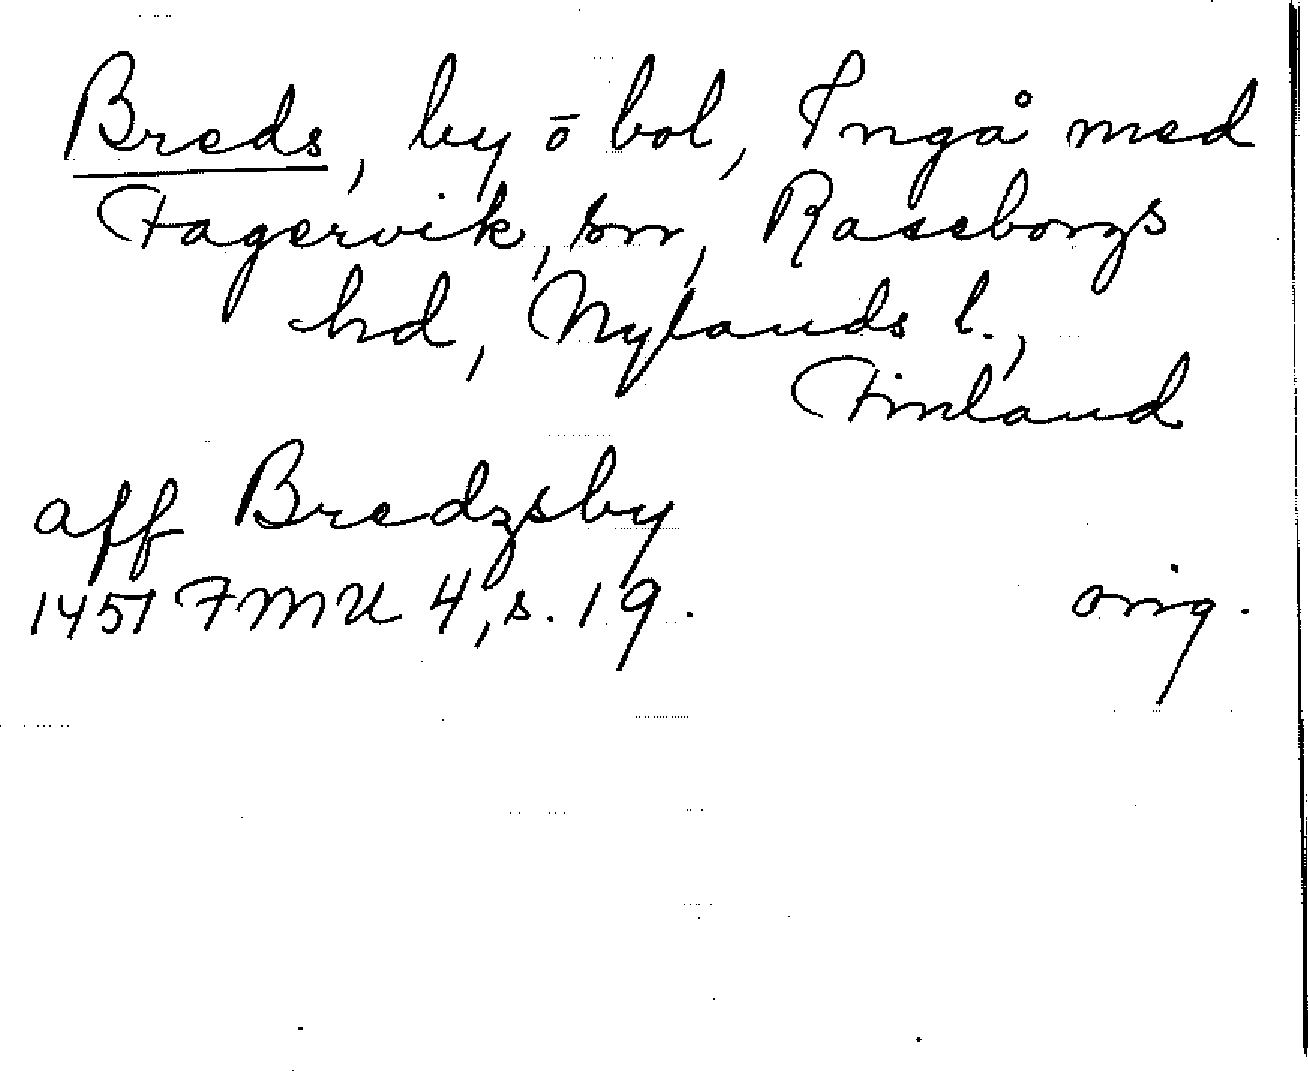 Breds, by ō bol, Ingå med
Fagervik, sn, Raseborgs
hd, Nylands l.,
Finland
aff Bredzsby
1451 FMU 4, s. 19. orig.